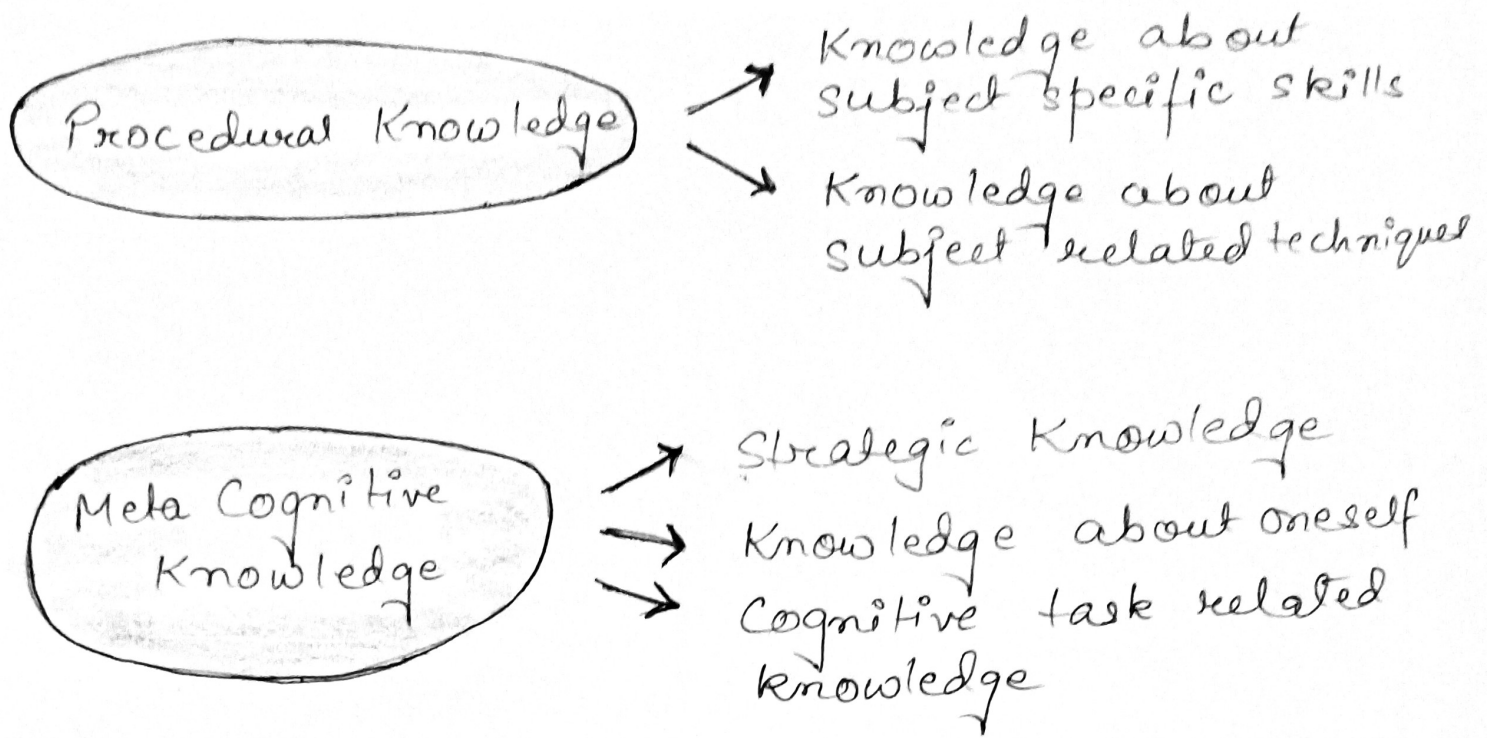 Procedural Knowledge
Knowledge about
subject specific skills
Knowledge about
subject related techniques
Meta Cognitive
Knowledge
Strategic Knowledge
Knowledge about oneself
Cognitive task related
knowledge